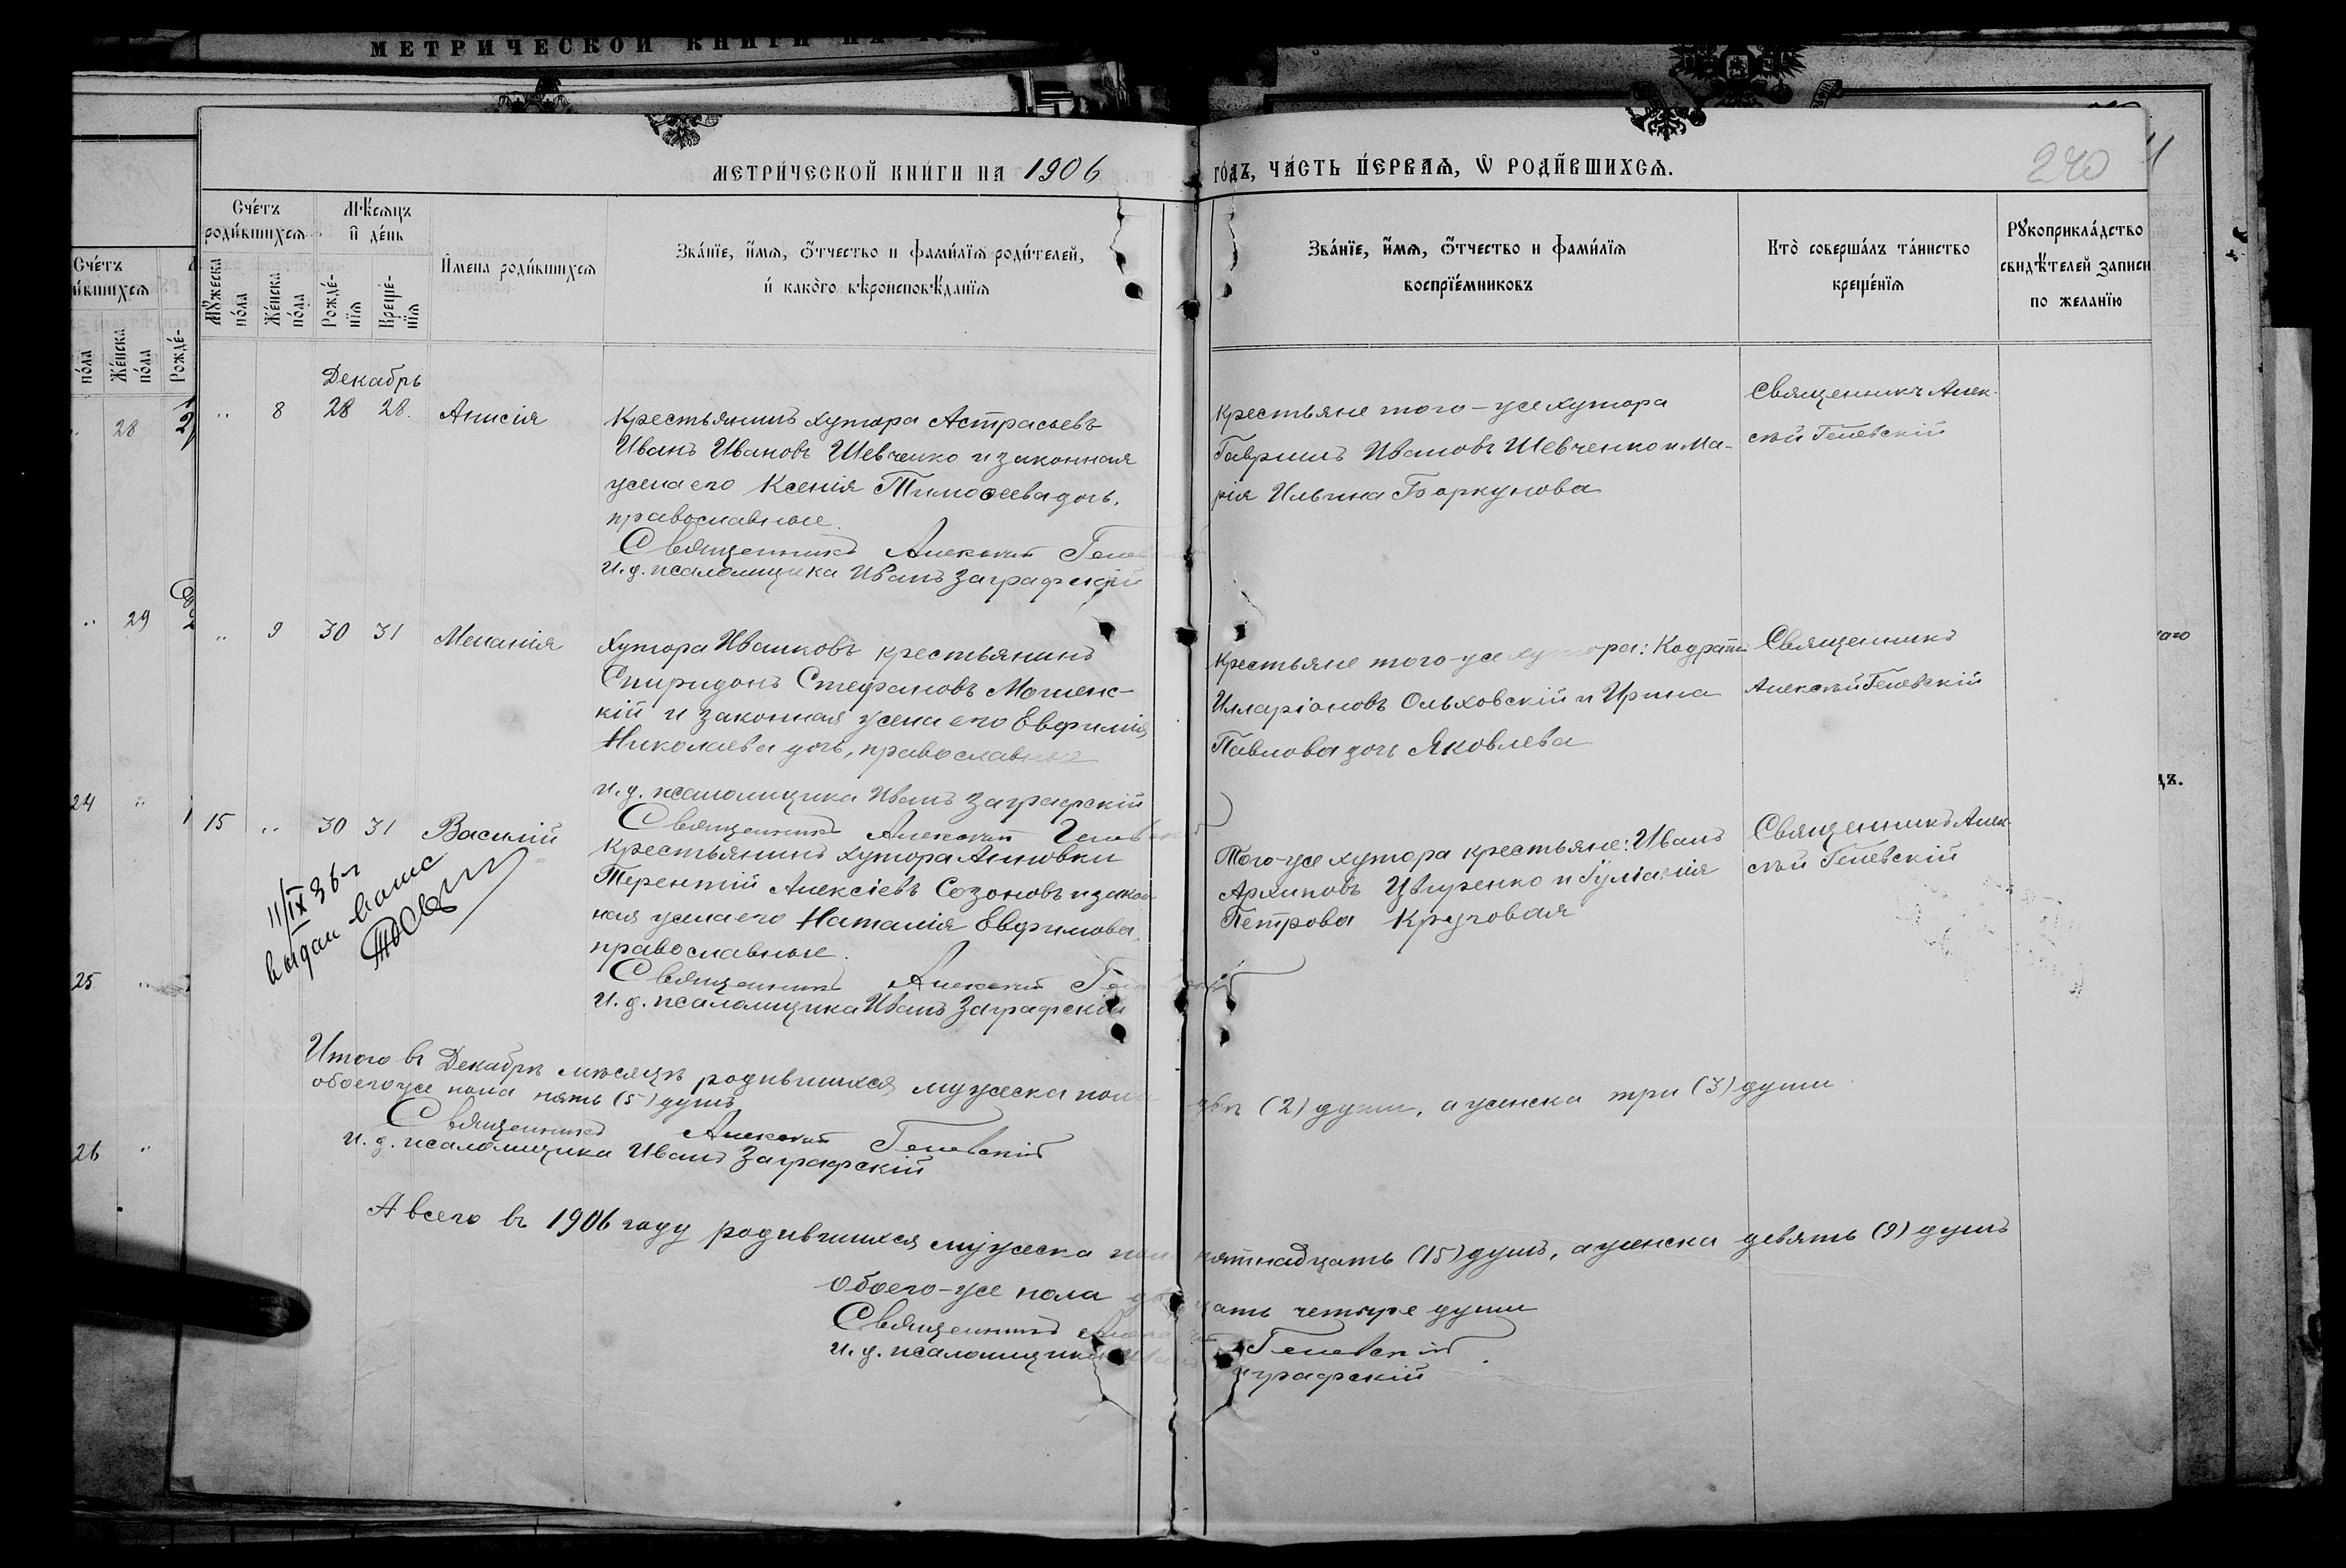 МЕТРИЧЕСКОЙ КНИГИ НА
МЕТРИ́ЧЕСКОЙ КНИ́ГИ НА 1906 ГО́ДЪ, ЧА́СТЬ ПЕ́РВАѦ, Ѡ҆ РОДИ́ВШИХСѦ.
240
Сче́тъ роди́вшихсѧ
Мѣ́сѧцъ и҆ де́нь
И҆мена роди́вшихсѧ
Зва́нїе, и҆́мѧ, ѻ҆́тчество и фами́лїѧ роди́телей,
и҆ како́гѡ вѣроисповѣ́данїѧ
Зва́нїе, и҆́мѧ, ѻ҆́тчество и фами́лїѧ
воспрїе́мниковъ
Кто̀ соверша́лъ та́инство
креще́нїѧ
Рꙋкоприкла́дство
свидѣ́телей записи
по жела́нїю
Мꙋ́жеска по́ла
Же́нска по́ла
Рожде́-нїѧ
Креще́-нїѧ
Сче́тъ
по́ла
Же́нска по́ла
Рожде́-
28
29
24
25
26
Декабрь
" 8 28 28. Анисія
Крестьянинъ хутора Астрасьевъ
Иванъ Ивановъ Шевченко и законная
жена его Ксенія Тимоѳеева дочь,
православные.
Священникъ Алексѣй
И. д. псаломщика Иванъ Заграфскій
Крестьяне того-же хутора
Гавріилъ Ивановъ Шевченко и Ма-
рія Ильина Боркунова
Священникъ Алек-
сѣй Гелевскій
" 9 30 31 Меланія
Хутора Ивашковъ крестьянинъ
Спиридонъ Стефановъ Мошенс-
кій и законная жена его Евфимія
Николаева дочь, православные
и. д. псаломщика Иванъ Заграфскій
Священникъ Алексѣй Гелевскій
Крестьяне того-же хутора: Кодратъ
Илларіоновъ Ольховскій и Ирина
Павлова дочь Яковлева
Священникъ
Алексѣй Гелевскій
15 " 30 31 Василій
Крестьянинъ хутора Анновки
Терентій Алексіевъ Созоновъ и закон-
ная жена его Наталія Евфимова,
православные.
Священникъ Алексѣй
И. д. псаломщика Иванъ Заграфскій
Того-же хутора крестьяне: Иванъ
Архиповъ Цвиренко и Іуліанія
Петрова Круговая
Священникъ Алек-
сѣй Гелевскій
11/IX 36 г
выдан
Итого въ Декабрѣ мѣсяцѣ родившихся мужеска пола двѣ (2) души, а женска три (3) души
обоего же пола пять (5) душъ
Священникъ Алексѣй Гелевскій
И. д. псаломщика Иванъ Заграфскій
А всего въ 1906 году родившихся мужеска пола пятнадцать (15) душъ, а женска девять (9) душъ
Обоего-же пола двадцать четыре души
Священникъ Алексѣй Гелевскій
и. д. псаломщика Иванъ Заграфскій